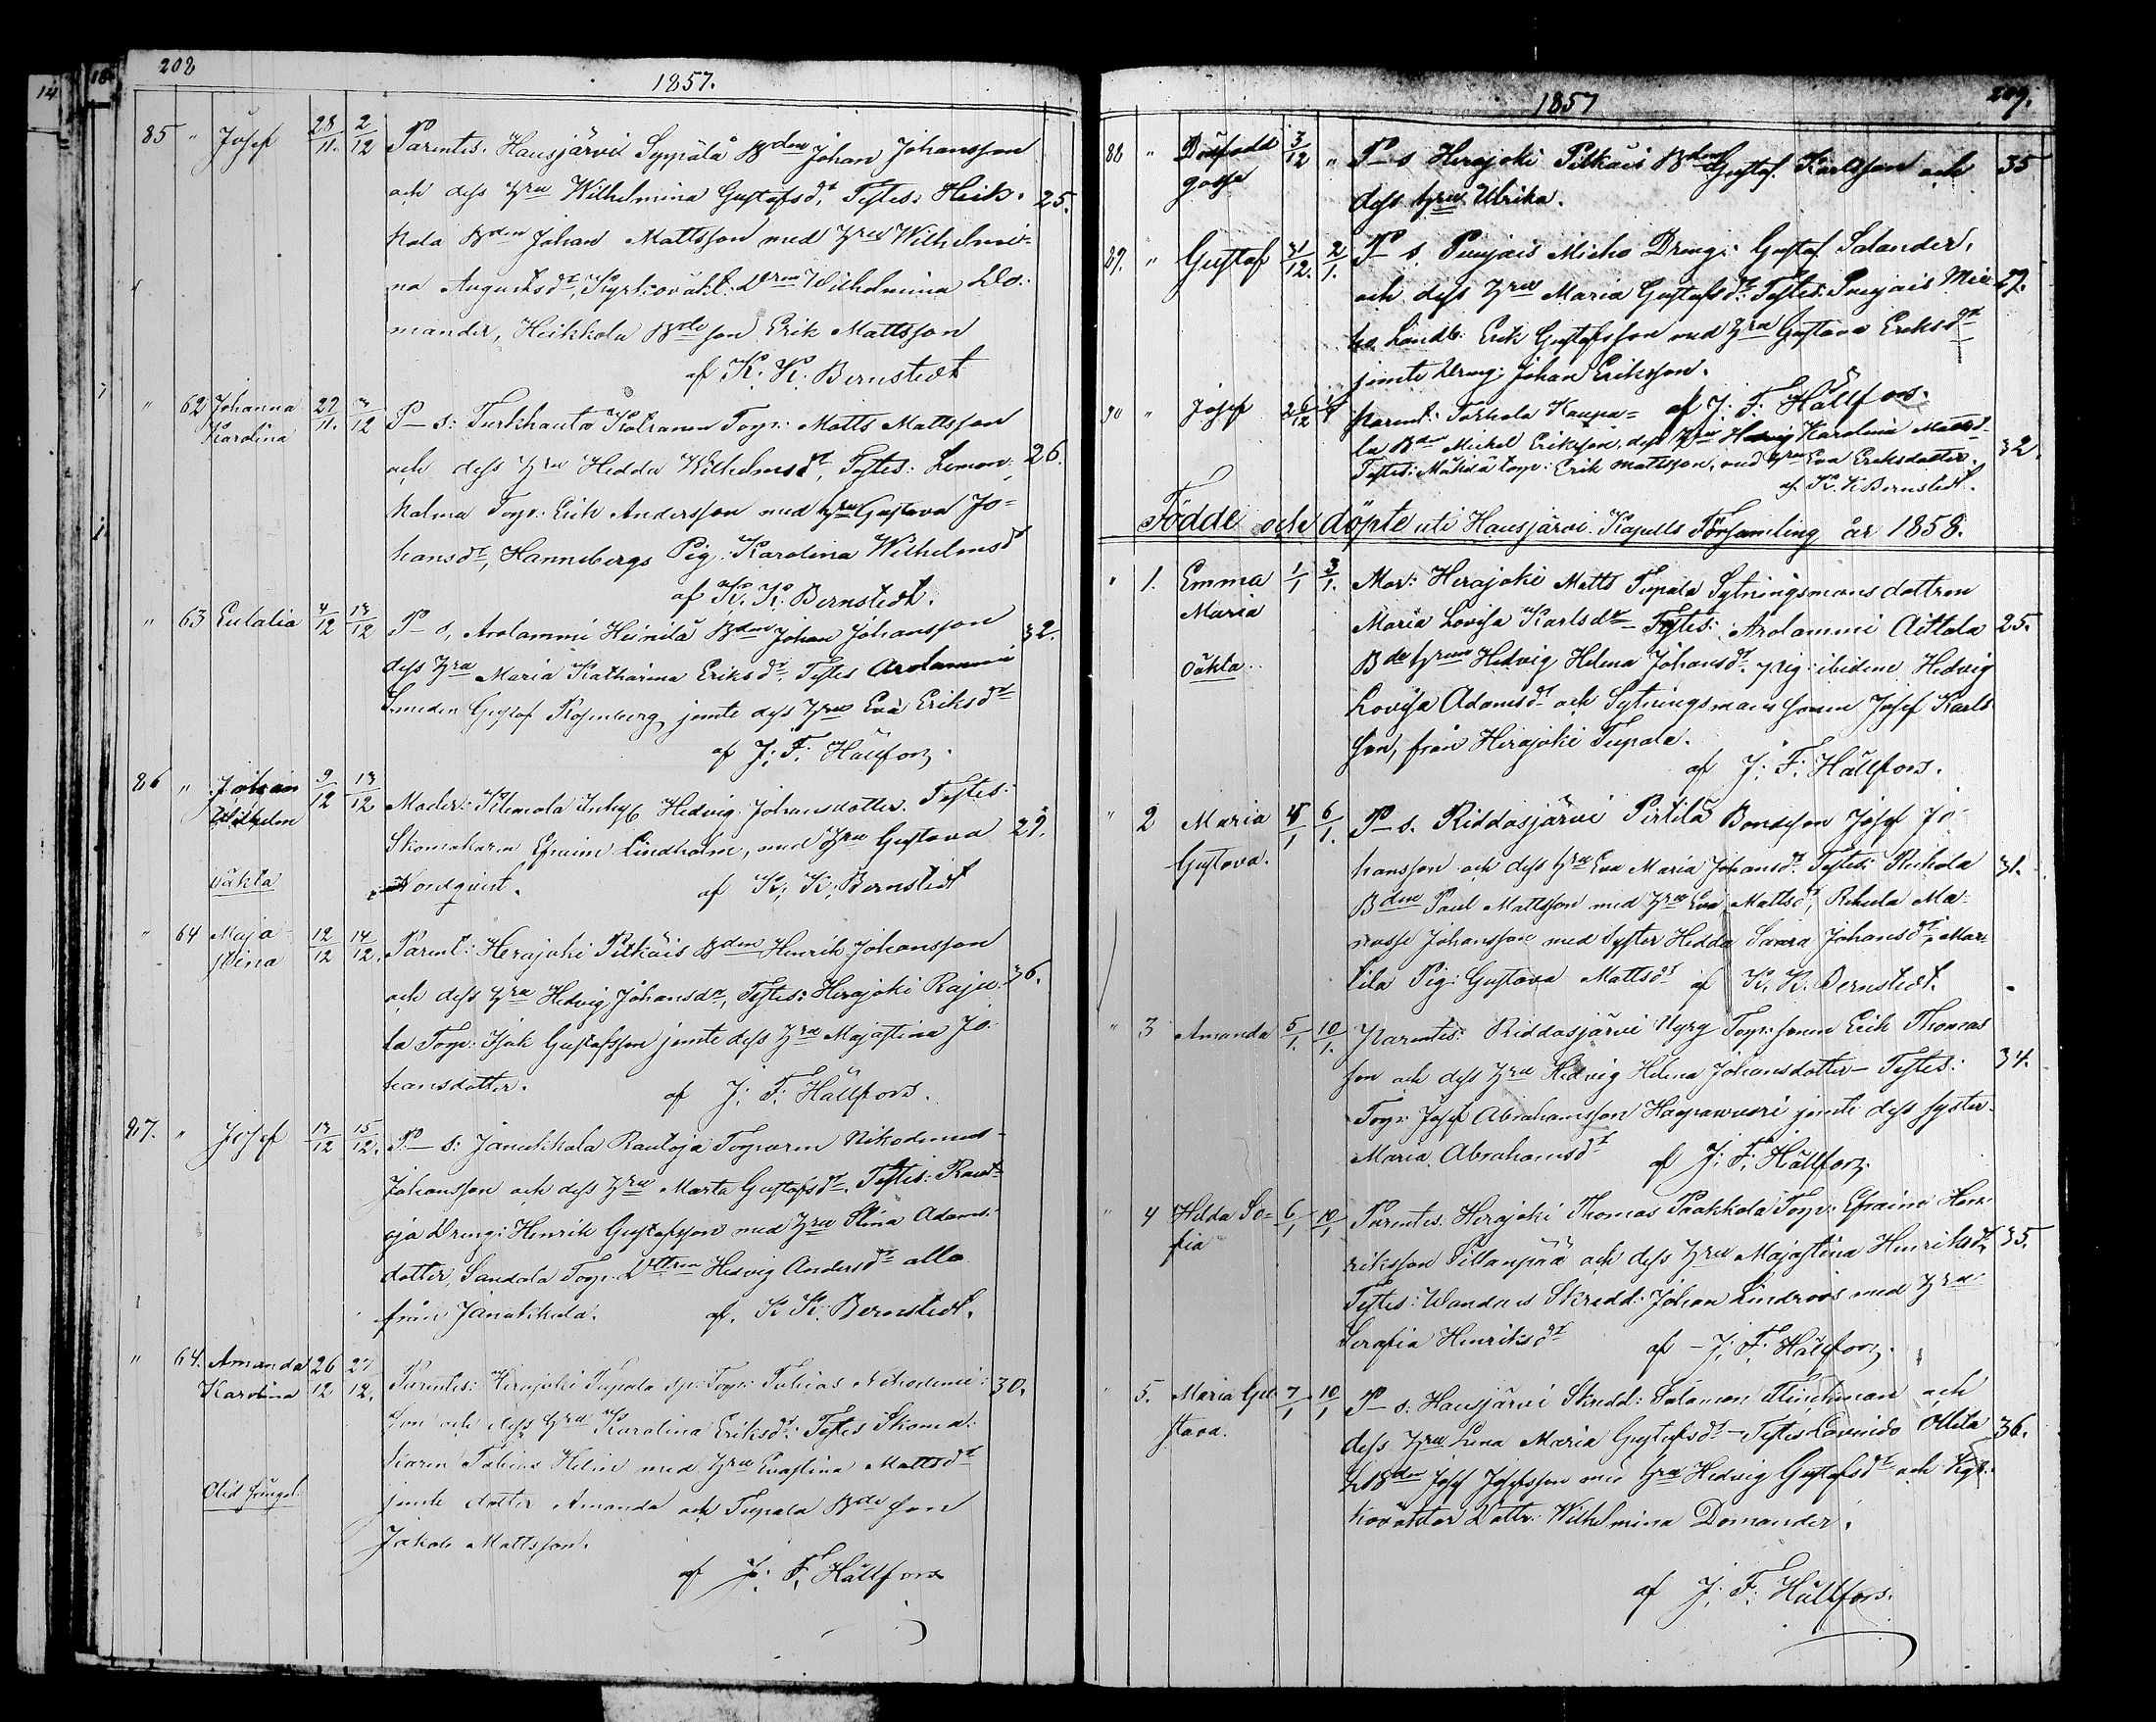 208
1857.
85 " Josef 28/11. 2/12 Parentes: Hausjärvi Syppälä Bden Johan Johansson
och dess hru Wilhelmina Gustafsdr, Testes: Heik- 25.
kola Bden Johan Mattsson med hru Wilhelmi-
na Augustsdr, Kyrkoväkt: Dren Wilhelmina Do-
mander, Heikkola Bde son Erik Mattsson
af K. K. Bernstedt
" 62 Johanna 29/11. 3/12 P—s: Turkhauta Torp: Matts Mattsson
Karolina och dess hru Hedda Wilhelmsdr, Testes: 26.
Torp: Erik Andersson med hru Gustava Jo-
hansdr, Hannebergs Pig: Karolina Wilhelmsdr
af K. K. Bernstedt.
" 63 Eulalia 4/12 13/12 P—s, Arolammi Heinilä Bden Johan Johansson 32.
dess hru Maria Katharina Eriksdr, Testes Arolammi
Smeden Gustaf Rosenberg jemte dess hru Eva Eriksdr
af J. F. Hällfors.
86 " Johan 9/12 13/12 Moder: Inhys Hedvig Johansdotter. Testes:
Wilhelm Skomakaren Efraim Lindholm, med hru Gustava 29.
oäkta Nordqvist. af K. K. Bernstedt
" 64 Maja 12/12 14/12. Parent: Herajoki Pitkäis Bden Henrik Johansson
stina och dess hru Hedvig Johansdr, Testes: Herajoki Raju- 36.
la Torp: Isak Gustafsson jemte dess hru Majastina Jo-
hansdotter. af J. F. Hällfors.
87. " Josef 13/12 15/12. P—s: Janakkala Rautoja Torparen Nikodemus
Johansson och dess hru Marta Gustafsdr. Testes: Raut-
oja Dreng: Henrik Gustafsson med hru Stina Adams-
dotter, Sandola Torp: Dttren Hedvig Andersdr alla
från Janakkala. af. K. K. Bernstedt.
" 64. Amanda 26/12 27/12. Parentes: Herajoki Tupala Torp: Tobias Nikodemi- 30.
Karolina son och dess hru Karolina Eriksdr: Testes Skoma-
karen Tobias Helin med hru Evastina Mattsdr
jemte dotter Amanda och Tupala Bde son
Jakob Mattsson.
af J. F. Hällfors
209.
1857
88 " Dödfödd 3/12 " P—s Herajoki Pitkäis Bden Gustaf Karlsson och 35
gosse dess hru Ulrika.
89. " Gustaf 31/12. 2/1. P—s. Punjais Micko Dreng: Gustaf Salander,
och dess hru Maria Gustafsdr: Testes: Punjais Mic- 27.
ko Landb: Erik Gustafsson med hru Gustava Eriksdr
jemte Dreng: Johan Eriksson.
af J. F. Hällfors.
90 " Josef Parent: Torhola Kaupa-
la Bden Mickel Eriksson, dess hru Hedvig Karolina Mattsd-
Testes: Torp: Erik Mattsson, med hru Eva Eriksdotter. 32.
af K. K Bernstedt.
Födde och döpte uti Hausjärvi Kapells Församling år 1858.
" 1. Emma 1/1 3/1. Mor: Herajoki Matts Tupala Sytningsmans dottren
Maria Maria Lovisa Karlsdr — Testes: Arolammi Aittala 25.
oäkta Bde hrun Hedvig Helena Johansdr. pig: ibidem Hedvig
Lovisa Adamsdr och Sytningsmans sonen Josef Karls-
son, från Herajoki Tupala.
af J. F. Hällfors.
" 2 Maria 6/1. P—s. Riddasjärvi Pirtilä Bondeson Josef Jo-
Gustava. hansson och dess hru Eva Maria Johansdr. Testes: Reihola 31.
Bden Paul Mattsson med hru Eva Mattsdr, Ma-
nasse Johansson med Syster Hedda Saara Johansdr, Mar-
tila Pig: Gustava Mattsdr af K. K. Bernstedt.
" 3 Amanda 5/1. 10/1. Parentes: Riddasjärvi Nyrg Torp: sonen Erik Thomas
son och dess hru Hedvig Helena Johansdotter — Testes: 34.
Torp: Josef Abrahamsson Haapavuori jemte dess syster
Maria Abrahamsdr af J. F. Hällfors.
" 4 Hilda So- 6/1 10/1 Parentes: Herajoki Thomas Paakkola Torp: Efraim Hen-
fia riksson Sillanpää och dess hru Majastina Henriksdr, 35.
Testes: Wandais Skredd: Johan Lindroos med hru
Serafia Henriksdr af — J. F. Hällfors.
" 5. Maria Gu- 7/1 10/1 P—s: Hausjärvi Skredd: Salamon Flinckman och
stava. dess hru Lena Maria Gustafsdr — Testes Lavinto Ollila 36.
Bden Josef Josefsson med hru Hedvig Gustafsdr och Kyr-
koväktar Dottr: Wilhelmina Domander.
af J. F. Hällfors.